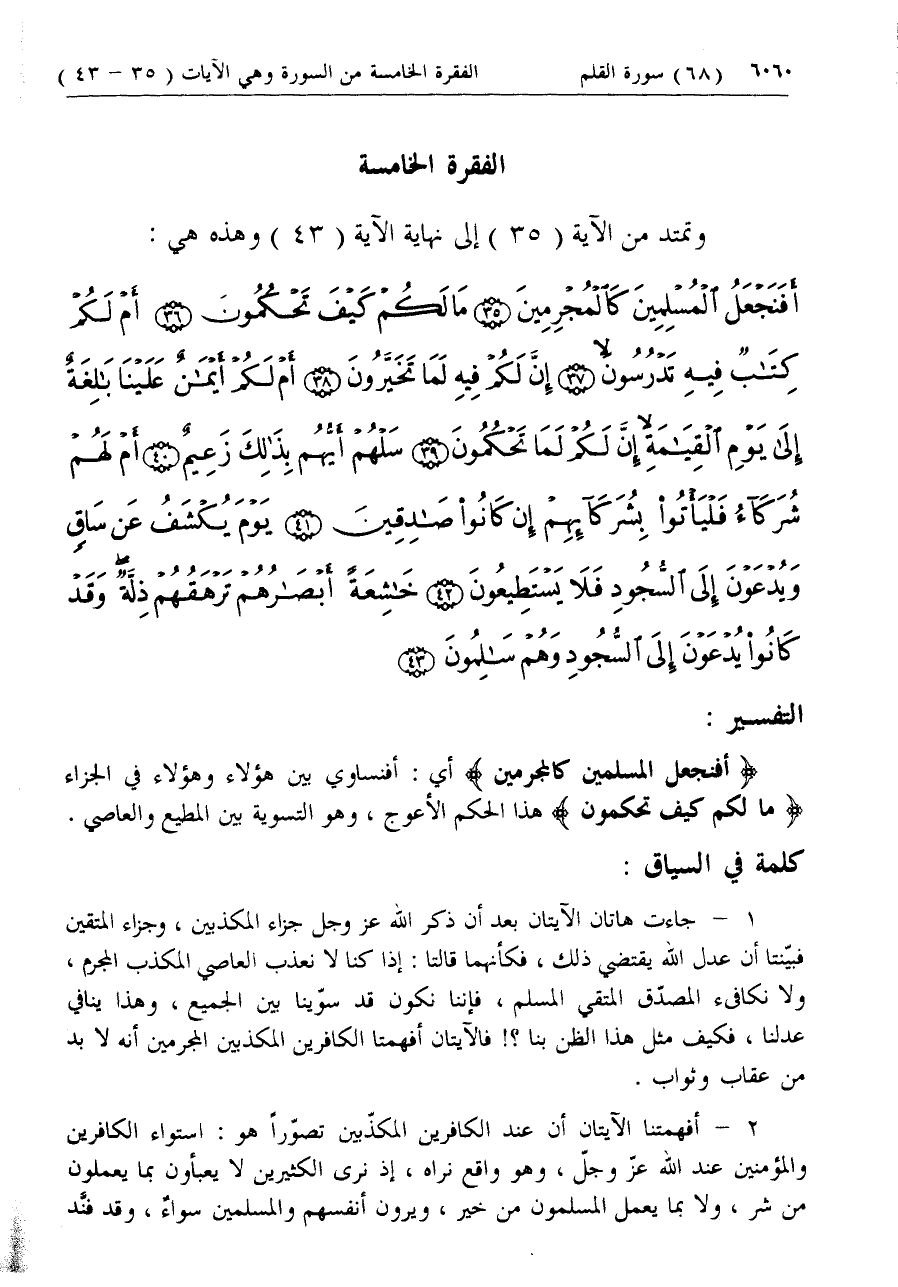 ٦٠٦٠ (٦٨) سورة القلم الفقرة الخامسة من السورة وهي الآيات ( ٣٥ – ٤٣ )
الفقرة الخامسة
وتمتد من الآية ( ٣٥ ) إلى نهاية الآية ( ٤٣ ) وهذه هي :
أَفَنَجْعَلُ ٱلْمُسْلِمِينَ كَٱلْمُجْرِمِينَ ﴿٣٥﴾ مَا لَكُمْ كَيْفَ تَحْكُمُونَ ﴿٣٦﴾ أَمْ لَكُمْ
كِتَـٰبٌ فِيهِ تَدْرُسُونَ ۙ ﴿٣٧﴾ إِنَّ لَكُمْ فِيهِ لَمَا تَخَيَّرُونَ ﴿٣٨﴾ أَمْ لَكُمْ أَيْمَـٰنٌ عَلَيْنَا بَـٰلِغَةٌ
إِلَىٰ يَوْمِ ٱلْقِيَـٰمَةِ ۙ إِنَّ لَكُمْ لَمَا تَحْكُمُونَ ﴿٣٩﴾ سَلْهُمْ أَيُّهُم بِذَٰلِكَ زَعِيمٌ ﴿٤٠﴾ أَمْ لَهُمْ
شُرَكَآءُ فَلْيَأْتُوا۟ بِشُرَكَآئِهِمْ إِن كَانُوا۟ صَـٰدِقِينَ ﴿٤١﴾ يَوْمَ يُكْشَفُ عَن سَاقٍ
وَيُدْعَوْنَ إِلَى ٱلسُّجُودِ فَلَا يَسْتَطِيعُونَ ﴿٤٢﴾ خَـٰشِعَةً أَبْصَـٰرُهُمْ تَرْهَقُهُمْ ذِلَّةٌ ۖ وَقَدْ
كَانُوا۟ يُدْعَوْنَ إِلَى ٱلسُّجُودِ وَهُمْ سَـٰلِمُونَ ﴿٤٣﴾
التفسير :
﴿ أفنجعل المسلمين كالمجرمين ﴾ أي : أفنساوي بين هؤلاء وهؤلاء في الجزاء
﴿ ما لكم كيف تحكمون ﴾ هذا الحكم الأعوج ، وهو التسوية بين المطيع والعاصي .
كلمة في السياق :
١ – جاءت هاتان الآيتان بعد أن ذكر الله عز وجل جزاء المكذبين ، وجزاء المتقين
فبيّنتا أن عدل الله يقتضي ذلك ، فكأنهما قالتا : إذا كنا لا نعذب العاصي المكذب المجرم ،
ولا نكافىء المصدّق المتقي المسلم ، فإننا نكون قد سوّينا بين الجميع ، وهذا ينافي
عدلنا ، فكيف مثل هذا الظن بنا ؟! فالآيتان أفهمتا الكافرين المكذبين المجرمين أنه لا بد
من عقاب وثواب .
٢ – أفهمتنا الآيتان أن عند الكافرين المكذّبين تصوّراً هو : استواء الكافرين
والمؤمنين عند الله عزّ وجلّ ، وهو واقع نراه ، إذ نرى الكثيرين لا يعبأون بما يعملون
من شر ، ولا بما يعمل المسلمون من خير ، ويرون أنفسهم والمسلمين سواءً ، وقد فنَّد